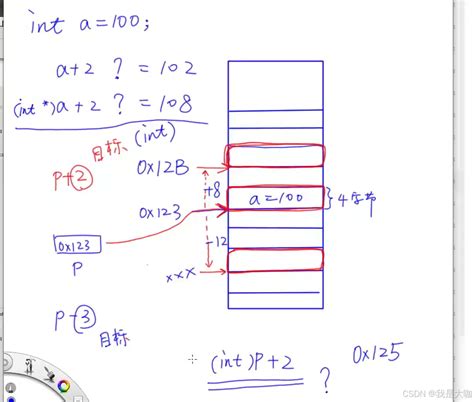 int a=100;
a+2 ? = 102
(int *)a+2 ? = 108
目标 (int)
P+2
0x12B
+8
0x123
a=100
4字节
0x123
P
-12
xxx
P-3
目标
(int)P+2 ?
0x125
CSDN @我是大咖